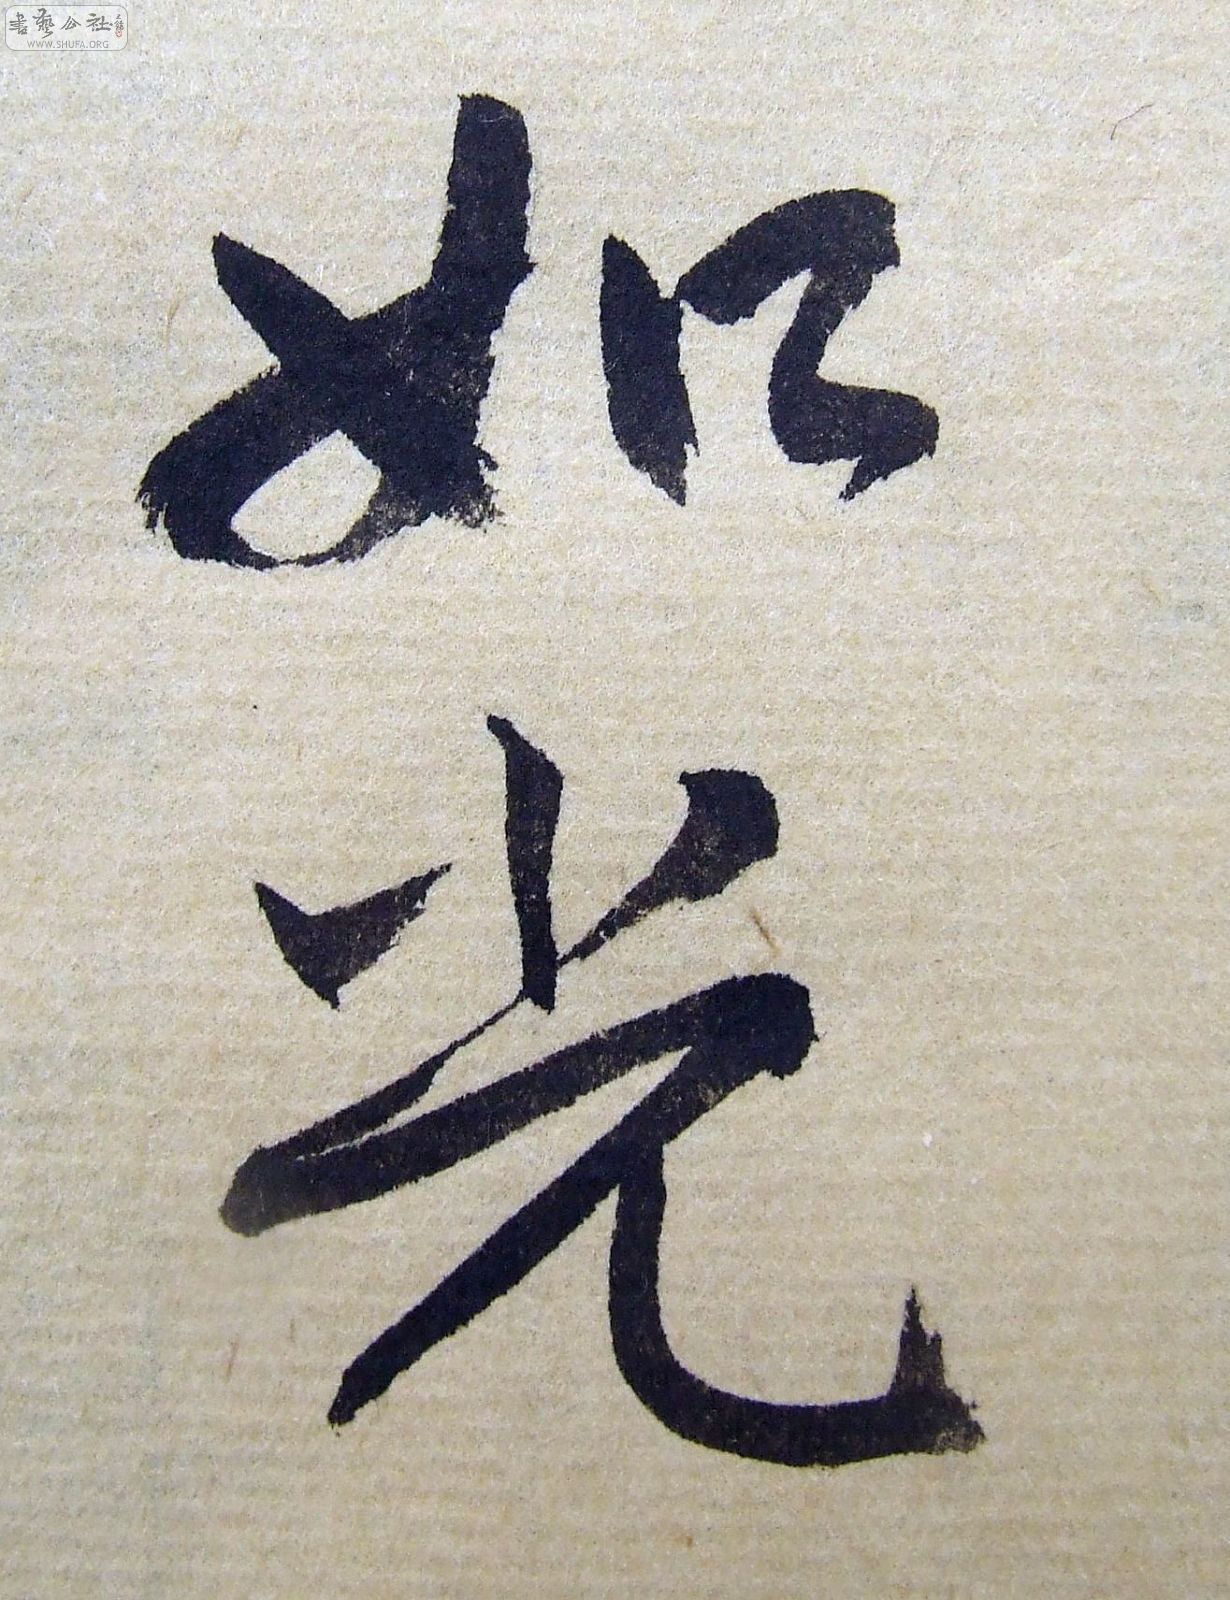 書藝公社
WWW.SHUFA.ORG
如
光